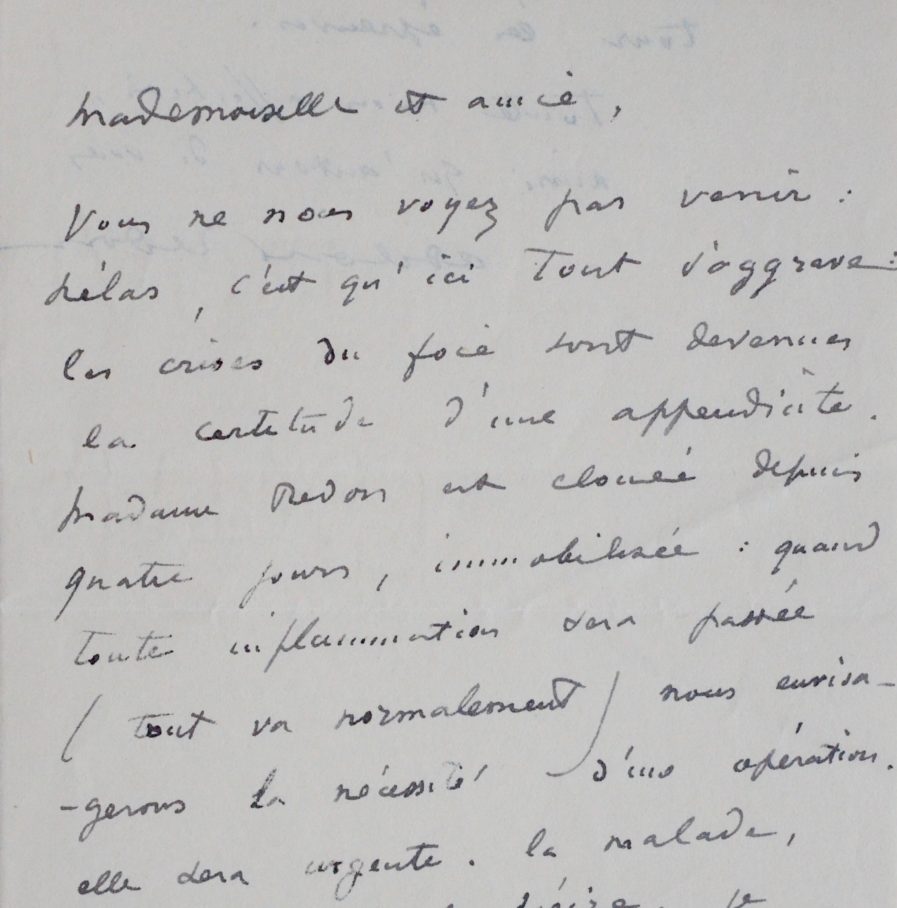 Mademoiselle et amie,
Vous ne nous voyez pas venir :
hélas, c'est qu'ici tout s'aggrave :
les crises du foie sont devenues
la certitude d'une appendicite.
Madame Redon est clouée depuis
quatre jours, immobilisée : quand
toute inflammation sera passée
( tout va normalement ) nous envisa-
-gerons la nécessité d'une opération.
elle sera urgente. la malade,